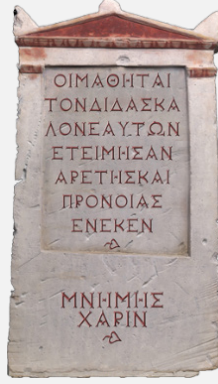 ΟΙΜΑΘΗΤΑΙ
ΤΟΝΔΙΔΑΣΚΑ
ΛΟΝΕΑΥΤΩΝ
ΕΤΕΙΜΗΣΑΝ
ΑΡΕΤΗΣΚΑΙ
ΠΡΟΝΟΙΑΣ
ΕΝΕΚΕΝ
ΜΝΗΜΗΣ
ΧΑΡΙΝ